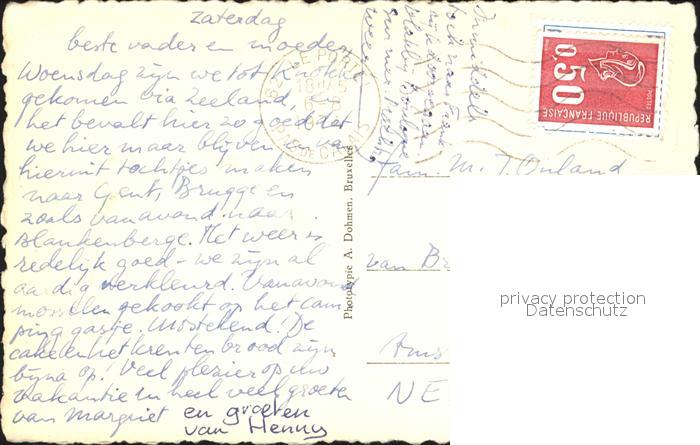 zaterdag
beste vader en moeder
Woensdag zijn we tot Knokke
gekomen via Zeeland, en
het bevalt hier zo goed dat
we hier maar blijven en van
hieruit tochtjes maken
naar Gent, Brugge en
zoals vanavond naar
Blankenberge. Het weer is
redelijk goed - we zijn al
aardig verkleurd. Vanavond
mosselen gekookt op het cam
ping gasje. Uitstekend! De
cake en het krentenbrood zijn
bijna op! Veel plezier op uw
vakantie en heel veel groeten
van Margriet en groeten
van Henny
Inmiddels
toch naar Frank
rijk
vlakbij Boulogne
weer
LE PORTEL
PAS DE CALAIS
0,50
REPUBLIQUE FRANCAISE
POSTES
Photolypie A. Dohmen, Bruxelles
Fam. M. T. Ouland
van Br
Ams
NE
privacy protection
Datenschutz